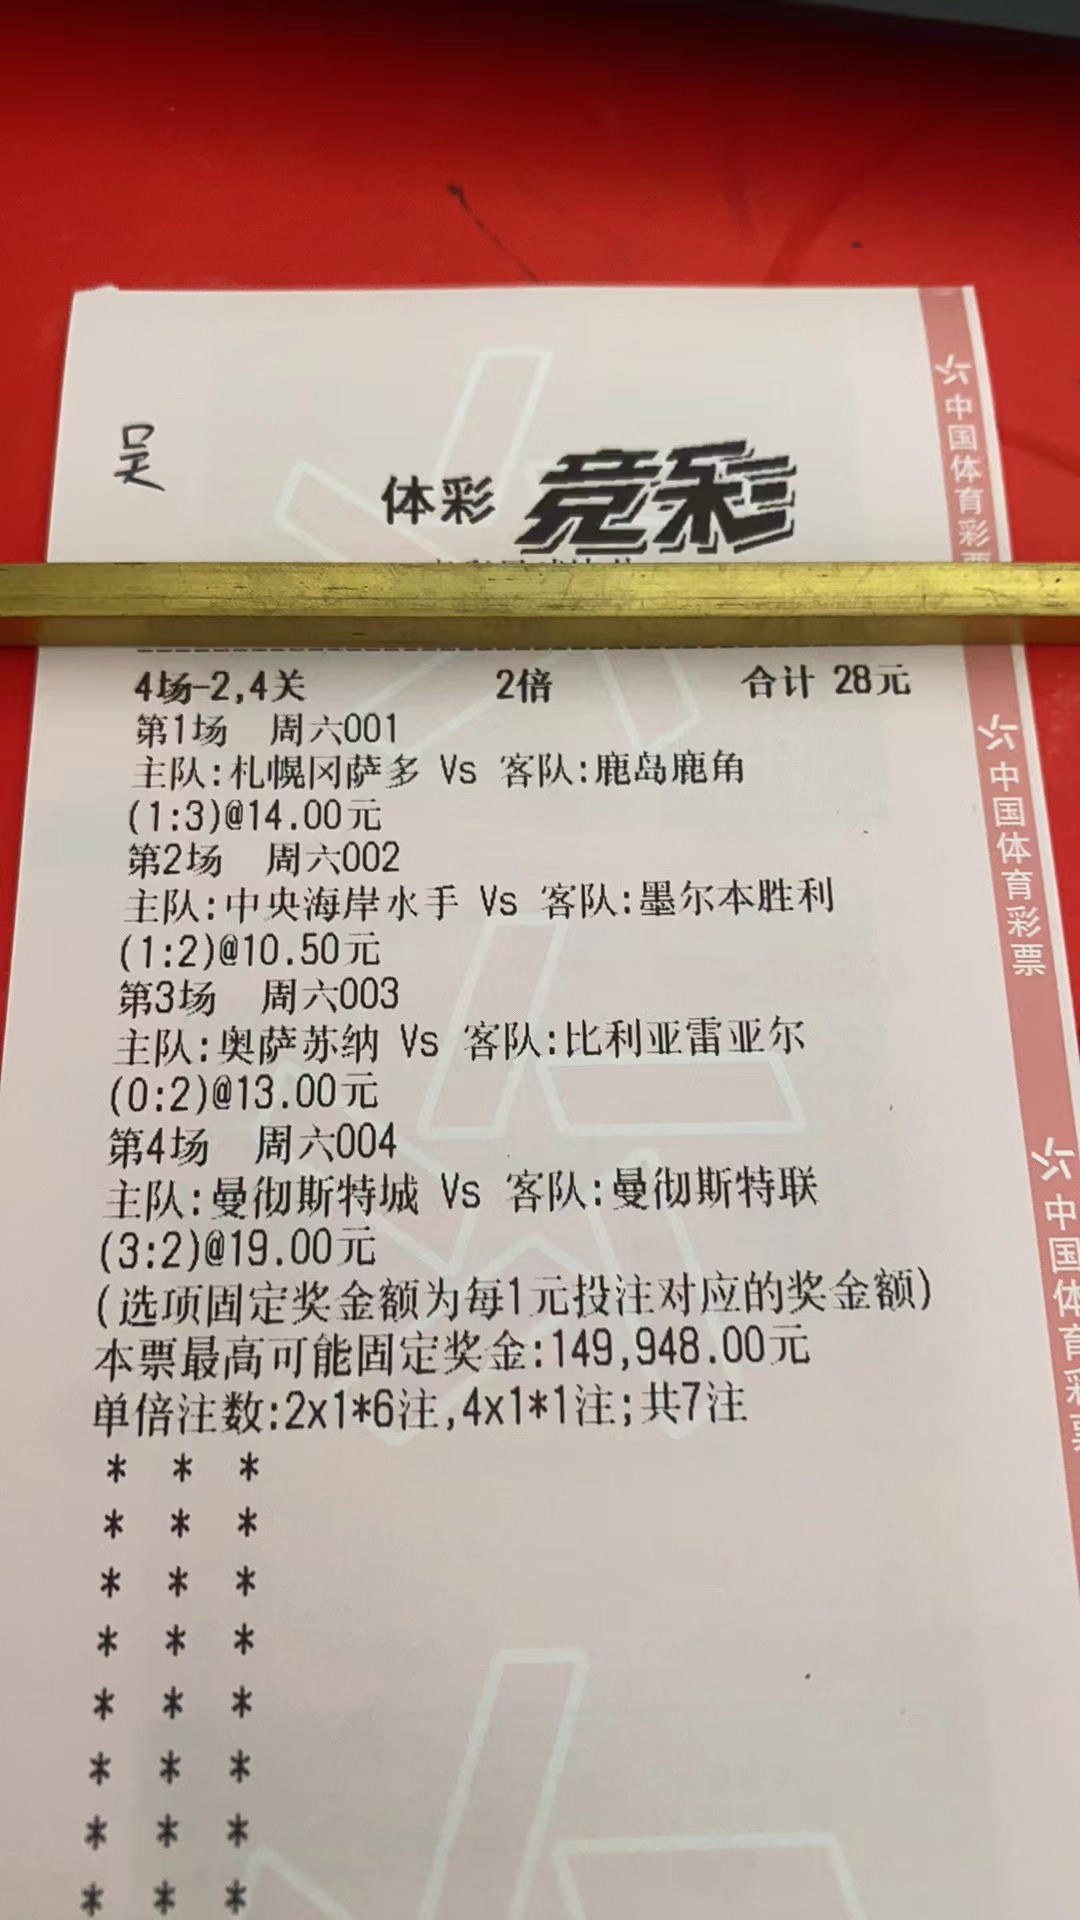 吴
体彩 竞彩
4场-2,4关 2倍 合计 28元
第1场 周六001
主队:札幌冈萨多 Vs 客队:鹿岛鹿角
(1:3)@14.00元
第2场 周六002
主队:中央海岸水手 Vs 客队:墨尔本胜利
(1:2)@10.50元
第3场 周六003
主队:奥萨苏纳 Vs 客队:比利亚雷亚尔
(0:2)@13.00元
第4场 周六004
主队:曼彻斯特城 Vs 客队:曼彻斯特联
(3:2)@19.00元
(选项固定奖金额为每1元投注对应的奖金额)
本票最高可能固定奖金:149,948.00元
单倍注数:2x1*6注,4x1*1注;共7注
* * *
* * *
* * *
* * *
* * *
* * *
* * *
* * *
中国体育彩票
中国体育彩票
中国体育彩票